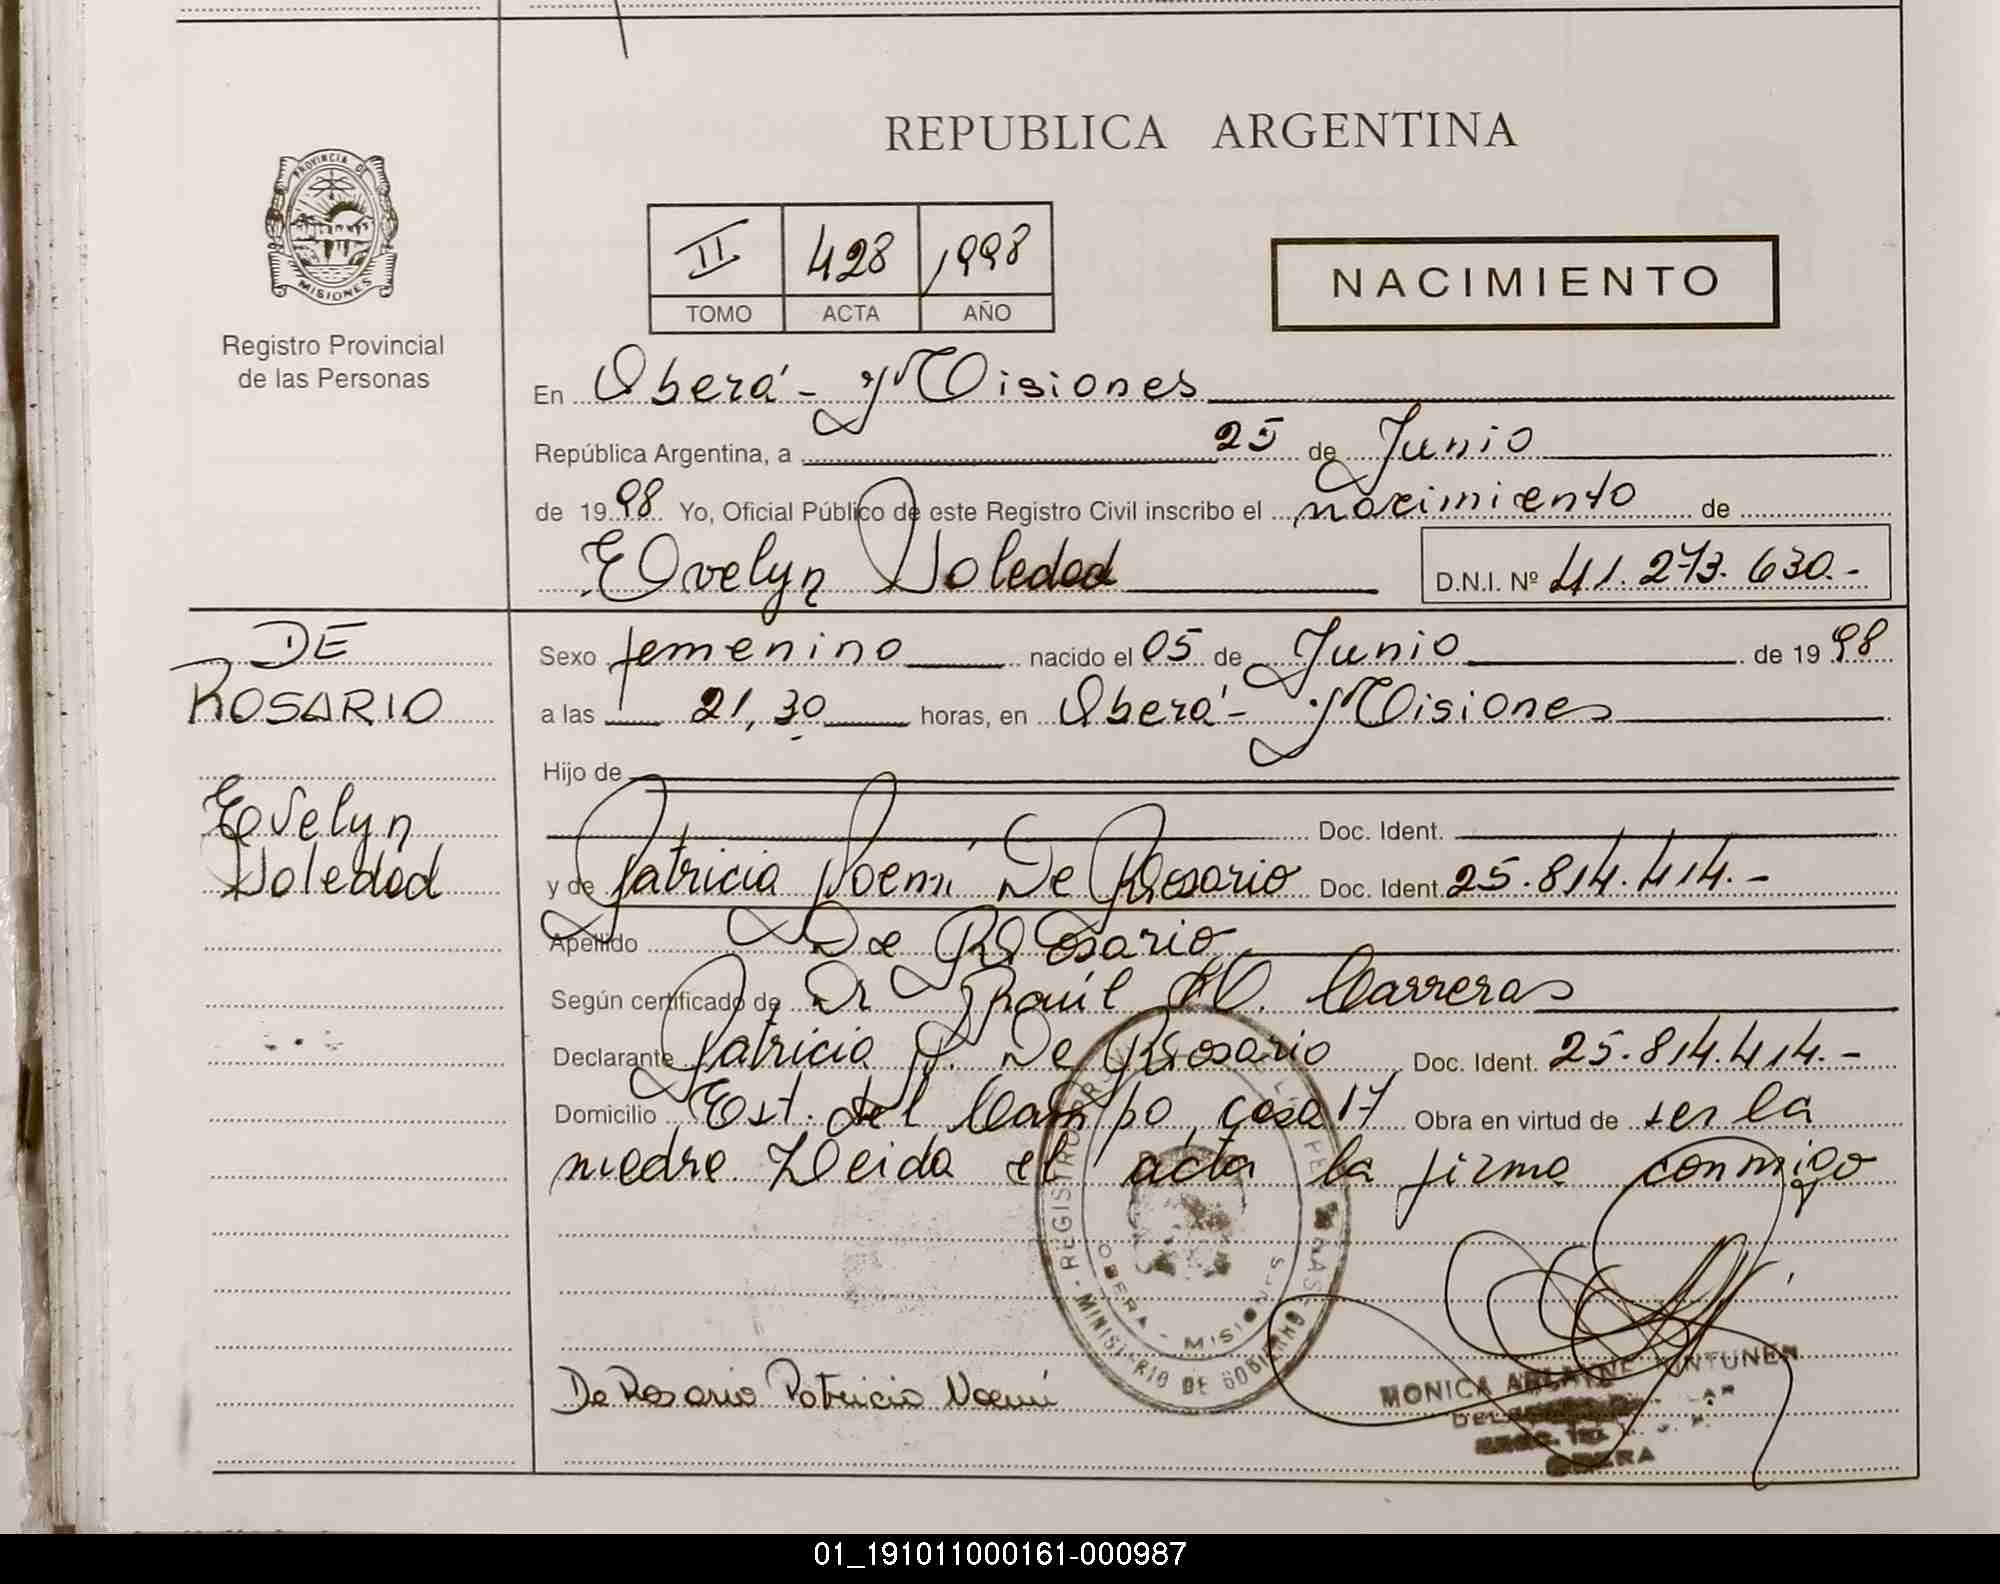 REPUBLICA ARGENTINA
PROVINCIA DE
MISIONES
Registro Provincial
de las Personas
II 428 1998
TOMO ACTA AÑO
NACIMIENTO
En Oberá - Misiones
República Argentina, a 25 de Junio
de 1998 Yo, Oficial Público de este Registro Civil inscribo el nacimiento de
Evelyn Soledad D.N.I. Nº 41.273.630.-
DE
ROSARIO
Evelyn
Soledad
Sexo femenino nacido el 05 de Junio de 1998
a las 21,30 horas, en Oberá - Misiones
Hijo de
Doc. Ident.
y de Patricia Noemí De Rosario Doc. Ident. 25.814.414.-
Apellido De Rosario
Según certificado de Dr Raúl H. Carreras
Declarante Patricia N. De Rosario Doc. Ident. 25.814.414.-
Domicilio Est. del Campo, casa 17 Obra en virtud de ser la
madre. Leida el acta la firma conmigo
REGISTRO
OBERA - MISIONES
MINISTERIO DE GOBIERNO
De Rosario Patricia Noemí
MONICA
OBERA
01_191011000161-000987